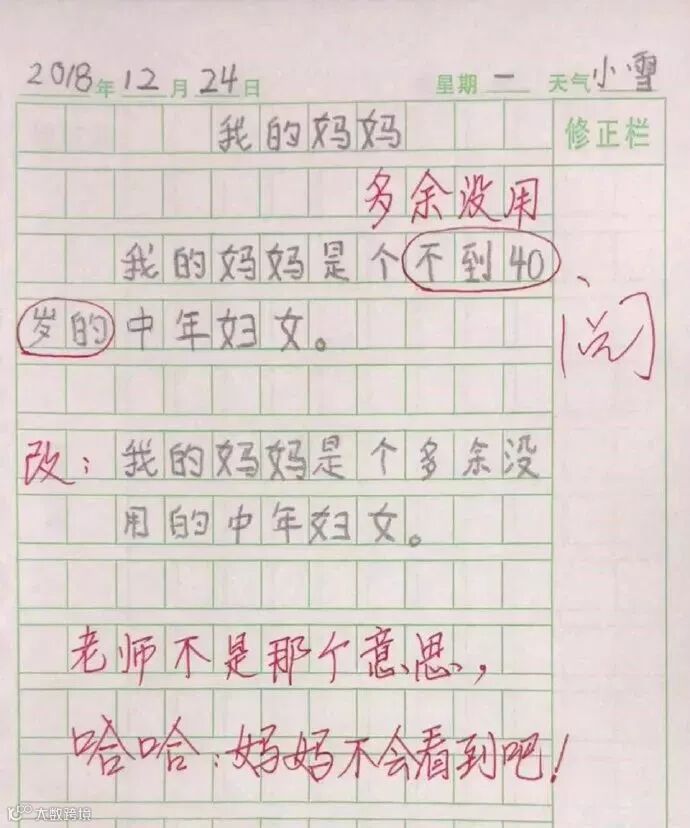 2018年12月24日 星期一 天气小雪
我的妈妈 修正栏
多余没用
我的妈妈是个不到40
岁的中年妇女。
阅
改：我的妈妈是个多余没
用的中年妇女。
老师不是那个意思，
哈哈：妈妈不会看到吧！
大数跨境